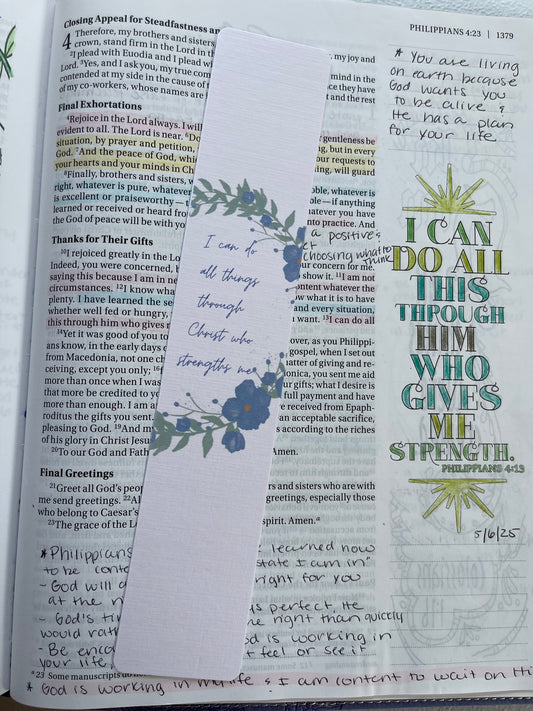 PHILIPPIANS 4:23 | 1379
Closing Appeal for Steadfastness an
4 Therefore, my brothers and sisters
crown, stand firm in the Lord in th
my joy and
2I plead with Euodia and I plead wi
mind in the
Lord. 3Yes, and I ask you, my true com
ce they have
contended at my side in the cause of
t and the rest
of my co-workers, whose names are
Final Exhortations
4Rejoice in the Lord always. I will
gentleness be
evident to all. The Lord is near. 6Do
ng, but in every
situation, by prayer and petition,
our requests to
God. 7And the peace of God, whic
ng, will guard
your hearts and your minds in Ch
8Finally, brothers and sisters, w
oble, whatever is
right, whatever is pure, whatever
ble—if anything
is excellent or praiseworthy—t
hatever you have
learned or received or heard from
nto practice. And
the God of peace will be with yo
a positive &
choosing what to
think
Thanks for Their Gifts
10I rejoiced greatly in the Lor
ur concern for me.
Indeed, you were concerned, b
show it. 11I am not
saying this because I am in ne
ontent whatever the
circumstances. 12I know wha
ow what it is to have
plenty. I have learned the se
and every situation,
whether well fed or hungry,
want. 13I can do all
this through him who gives m
14Yet it was good of you to
over, as you Philippi-
ans know, in the early days o
gospel, when I set out
from Macedonia, not one ch
atter of giving and re-
ceiving, except you only; 16
onica, you sent me aid
more than once when I was
ur gifts; what I desire is
that more be credited to yo
full payment and have
more than enough. I am a
e received from Epaph-
roditus the gifts you sent.
an acceptable sacrifice,
pleasing to God. 19And my
according to the riches
of his glory in Christ Jesu
20To our God and Fath
Amen.
Final Greetings
21Greet all God's peop
rs and sisters who are with
me send greetings. 22Al
greetings, especially those
who belong to Caesar's
23The grace of the Lo
spirit. Amen.a
I can do
all things
through
Christ who
strengths me
* You are living
on earth because
God wants you
to be alive &
He has a plan
for your life
I CAN
DO ALL
THIS
THROUGH
HIM
WHO
GIVES
ME
STRENGTH.
PHILIPPIANS 4:13
5/6/25
*Philippians
learned how
to be conte
state I am in"
- God will d
right for you
at the n
- God's ti
s perfect. He
would rath
e right than quickly
- Be enco
d is working in
your life,
t feel or see it
a23 Some manuscripts do not
* God is working in my life & I am content to wait on Hi